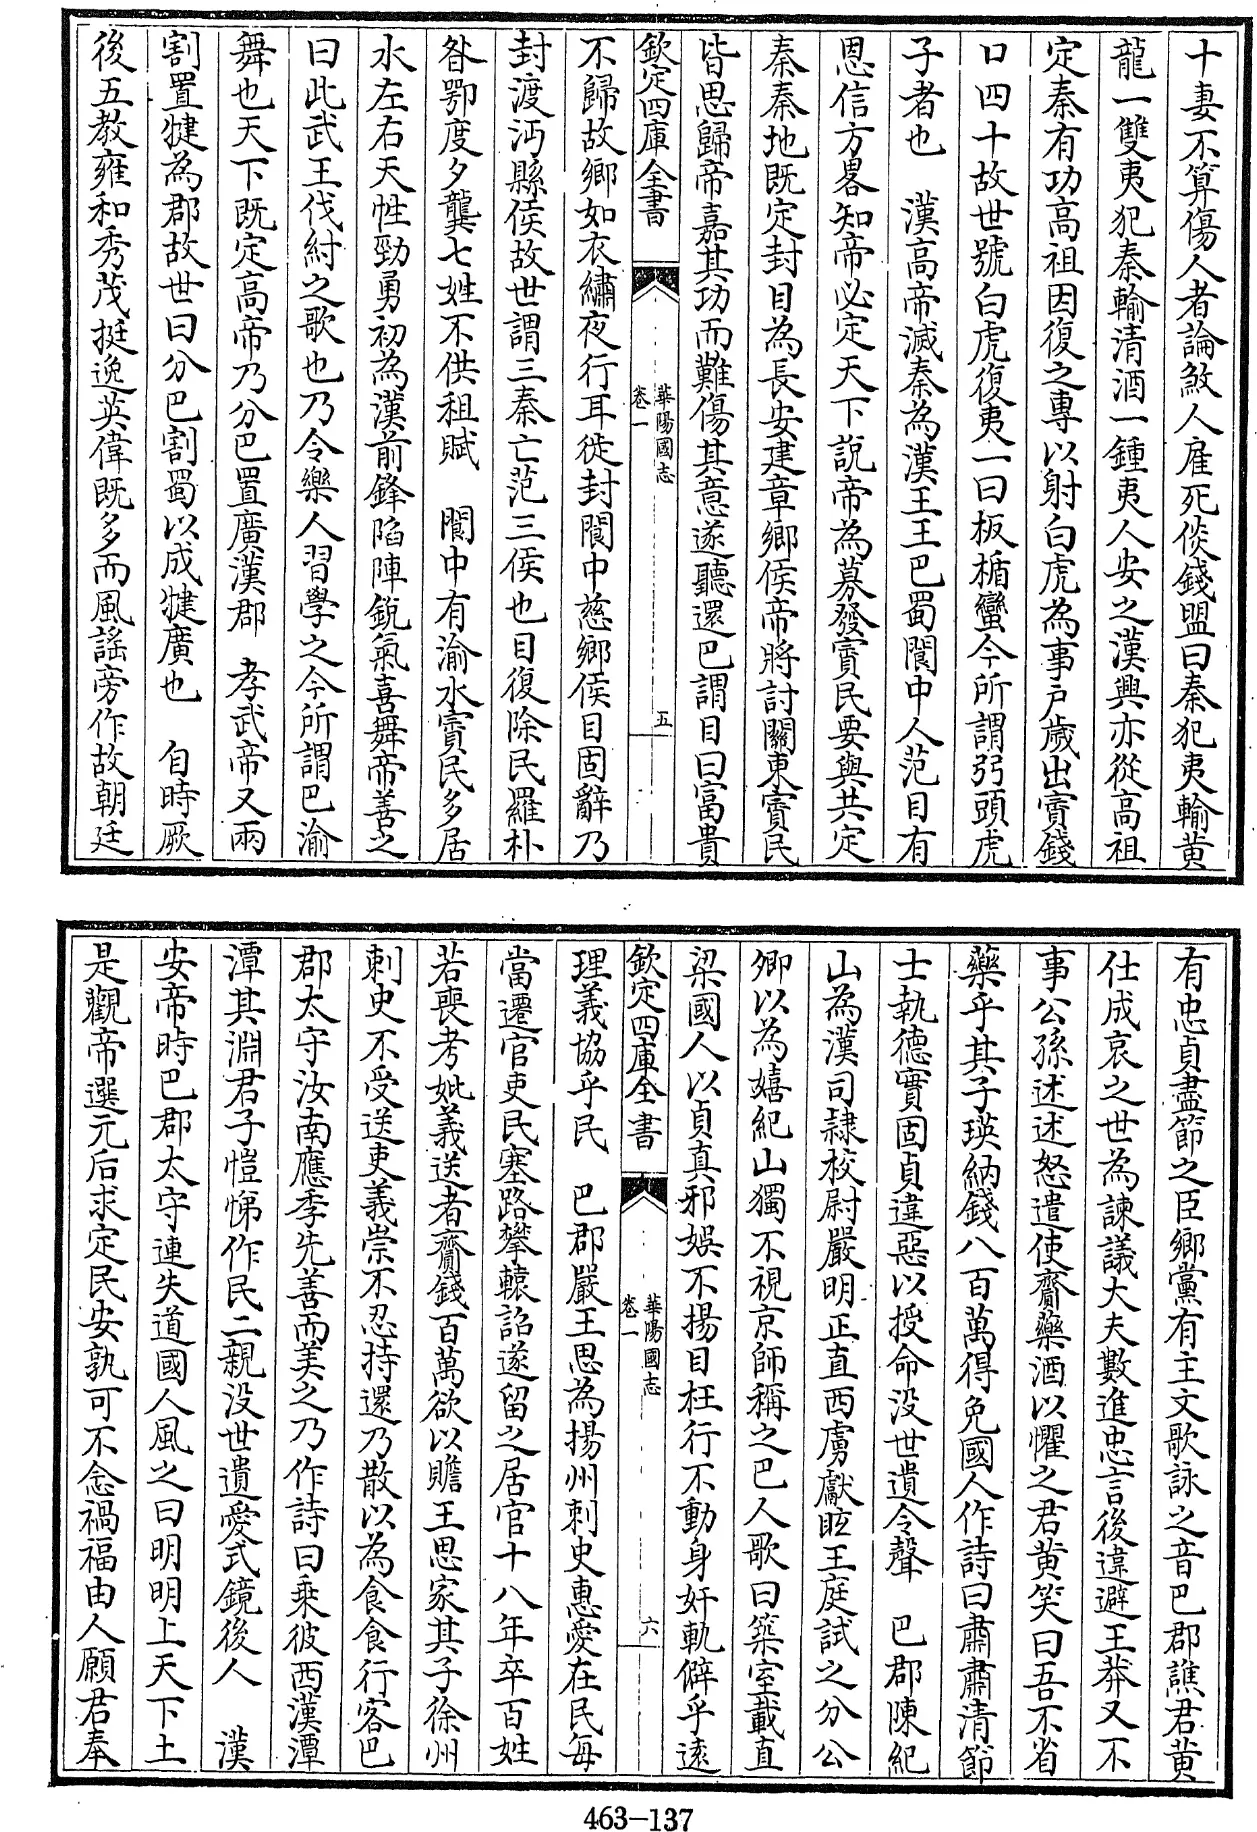 十妻不算傷人者論煞人雇死倓錢盟曰秦犯夷輸黄
龍一雙夷犯秦輸清酒一鍾夷人安之漢興亦從高祖
定秦有功高祖因復之專以射白虎為事户歲出賨錢
口四十故世號白虎復夷一曰板楯蠻今所謂弜頭虎
子者也　漢高帝滅秦為漢王王巴蜀閬中人范目有
恩信方畧知帝必定天下說帝為募發賨民要與共定
秦秦地既定封目為長安建章鄉侯帝將討關東賨民
皆思歸帝嘉其功而難傷其意遂聽還巴謂目曰富貴
欽定四庫全書
華陽國志
卷一
五
不歸故鄉如衣繡夜行耳徙封閬中慈鄉侯目固辭乃
封渡沔縣侯故世謂三秦亡范三侯也目復除民羅朴
昝鄂度夕龔七姓不供租賦　閬中有渝水賨民多居
水左右天性勁勇初為漢前鋒陷陣銳氣喜舞帝善之
曰此武王伐紂之歌也乃令樂人習學之今所謂巴渝
舞也天下既定高帝乃分巴置廣漢郡　孝武帝又兩
割置犍為郡故世曰分巴割蜀以成犍廣也　自時厥
後五教雍和秀茂挺逸英偉既多而風謡旁作故朝廷
有忠貞盡節之臣鄉黨有主文歌詠之音巴郡譙君黄
仕成哀之世為諫議大夫數進忠言後違避王莽又不
事公孫述述怒遣使齎藥酒以懼之君黄笑曰吾不省
藥乎其子瑛納錢八百萬得免國人作詩曰肅肅清節
士執德實固貞違惡以授命没世遺令聲　巴郡陳紀
山為漢司隷校尉嚴明正直西虜獻眩王庭試之分公
卿以為嬉紀山獨不視京師稱之巴人歌曰築室載直
梁國人以貞真邪娱不揚目枉行不動身奸軌僻乎遠
欽定四庫全書
華陽國志
卷一
六
理義協乎民　巴郡嚴王思為揚州刺史惠愛在民每
當遷官吏民塞路攀轅詔遂留之居官十八年卒百姓
若喪考妣義送者齎錢百萬欲以贍王思家其子徐州
刺史不受送吏義崇不忍持還乃散以為食食行客巴
郡太守汝南應季先善而美之乃作詩曰乘彼西漢潭
潭其淵君子愷悌作民二親没世遺愛式鏡後人　漢
安帝時巴郡太守連失道國人風之曰明明上天下土
是觀帝選元后求定民安孰可不念禍福由人願君奉
463-137